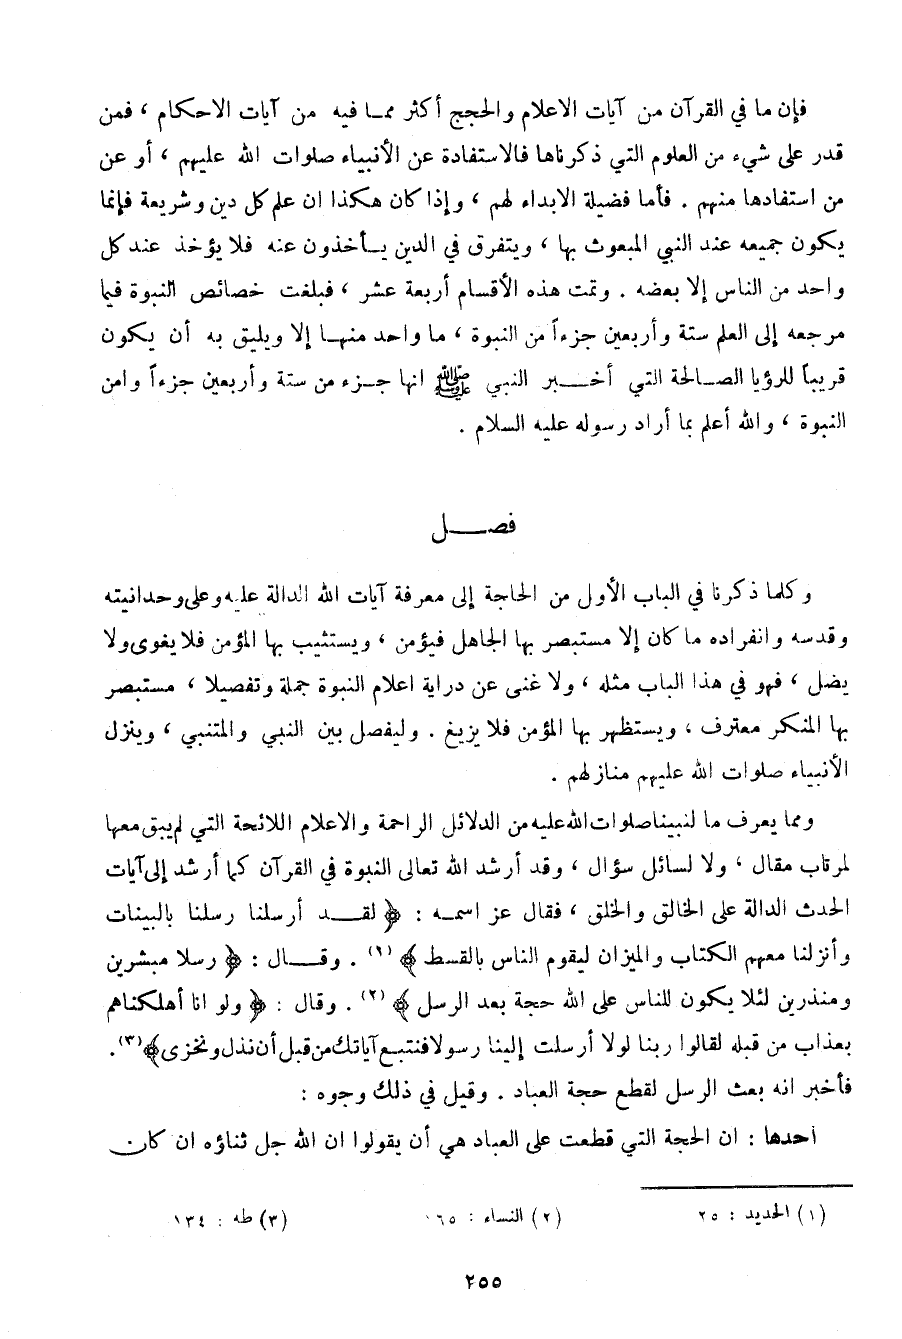 فإن ما في القرآن من آيات الاعلام والحجج أكثر ممـا فيه من آيات الاحكام ، فمن
قدر على شيء من العلوم التي ذكرناها فالاستفادة عن الأنبياء صلوات الله عليهم ، أو عن
من استفادها منهم . فأما فضيلة الابداء لهم ، وإذا كان هكذا ان علم كل دين وشريعة فإنما
يكون جميعه عند النبي المبعوث بها ، ويتفرق في الدين يـأخذون عنه فلا يؤخذ عند كل
واحد من الناس إلا بعضه . وتمت هذه الأقسام أربعة عشر ، فبلغت خصائص النبوة فيما
مرجعه إلى العلم ستة وأربعين جزءاً من النبوة ، ما واحد منهـا إلا ويليق به أن يكون
قريباً للرؤيا الصـالحة التي أخـبر النبي ﷺ انها جـزء من ستة وأربعين جزءاً وامن
النبوة ، والله أعلم بما أراد رسوله عليه السلام .
فصـــل
وكلما ذكرنا في الباب الأول من الحاجة إلى معرفة آيات الله الدالة عليه وعلى وحدانيته
وقدسه وانفراده ما كان إلا مستبصر بها الجاهل فيؤمن ، ويستثيب بها المؤمن فلا يغوى ولا
يضل ، فهو في هذا الباب مثله ، ولا غنى عن دراية اعلام النبوة جملة وتفصيلا ، مستبصر
بها المنكر معترف ، ويستظهر بها المؤمن فلا يزيغ . وليفصل بين النبي والمتنبي ، وينزل
الأنبياء صلوات الله عليهم منازلهم .
ومما يعرف ما لنبينا صلوات الله عليه من الدلائل الراحمة والاعلام اللائحة التي لم يبق معها
لمرتاب مقال ، ولا لسائل سؤال ، وقد أرشد الله تعالى النبوة في القرآن كما أرشد إلى آيات
الحدث الدالة على الخالق والخلق ، فقال عز اسمـه : ﴿ لقـد أرسلنا رسلنا بالبينات
وأنزلنا معهم الكتاب والميزان ليقوم الناس بالقسط ﴾ (١) . وقـال : ﴿ رسلا مبشرين
ومنذرين لئلا يكون للناس على الله حجة بعد الرسل ﴾ (٢) . وقال : ﴿ ولو انا أهلكناهم
بعذاب من قبله لقالوا ربنا لولا أرسلت إلينا رسولا فنتبع آياتك من قبل أن نذل ونخزى ﴾ (٣) .
فأخبر انه بعث الرسل لقطع حجة العباد . وقيل في ذلك وجوه :
أحدها : ان الحجة التي قطعت على العباد هي أن يقولوا ان الله جل ثناؤه ان كان
(١) الحديد : ٢٥ (٢) النساء : ١٦٥ (٣) طه : ١٣٤
٢٥٥